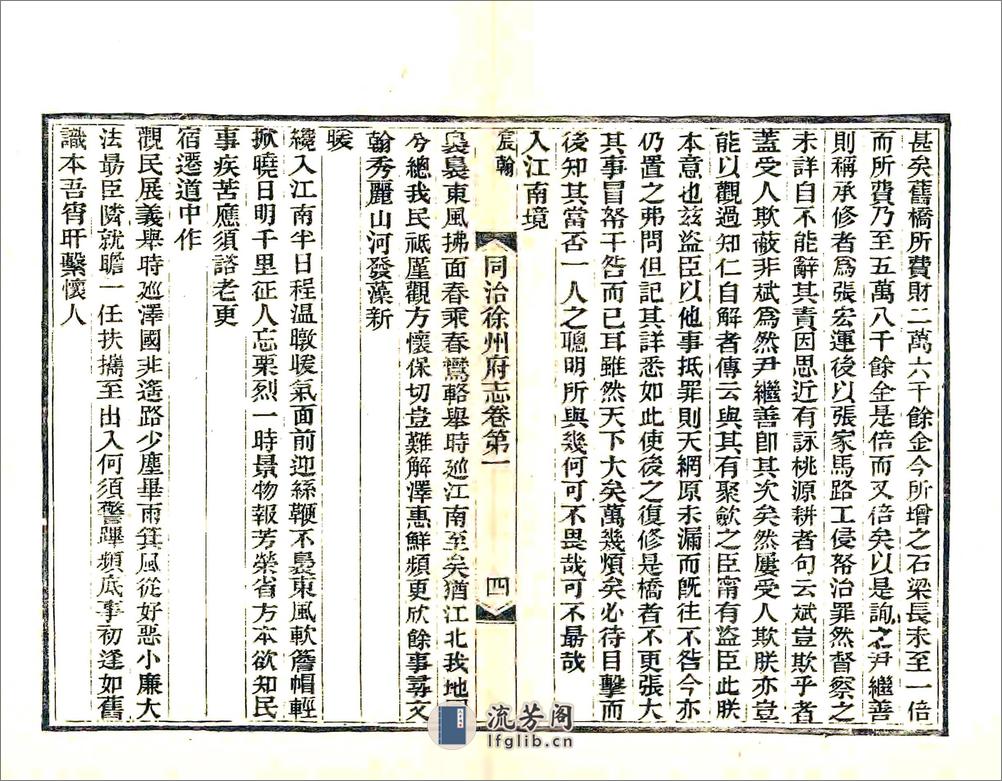 甚矣舊橋所費財二萬六千餘金今所增之石梁長未至一倍
而所費乃至五萬八千餘金是倍而又倍矣以是詢之尹繼善
則稱承修者爲張宏運後以張家馬路工侵帑治罪然督察之
未詳自不能辭其責因思近有詠桃源耕者句云斌豈欺乎者
蓋受人欺蔽非斌爲然尹繼善卽其次矣然屢受人欺朕亦豈
能以觀過知仁自解者傳云與其有聚斂之臣甯有盜臣此朕
本意也茲盜臣以他事抵罪則天網原未漏而旣往不咎今亦
仍置之弗問但記其詳悉如此使後之復修是橋者不更張大
其事冒帑干咎而已耳雖然天下大矣萬幾煩矣必待目擊而
後知其當否一人之聰明所與幾何可不畏哉可不勗哉
入江南境
宸翰
同治徐州府志卷第一
四
裊裊東風拂面春乘春鸞輅舉時巡江南至矣猶江北我地
兮總我民祗厪觀方懷保切豈難解澤惠鮮頻更欣餘事尋文
翰秀麗山河發藻新
暖
纔入江南半日程温暾暖氣面前迎絲鞭不裊東風軟簷帽輕
掀曉日明千里征人忘栗烈一時景物報芳榮省方本欲知民
事疾苦應須諮老更
宿遷道中作
觀民展義舉時巡澤國非遙路少塵畢雨箕風從好惡小廉大
法勗臣隣就瞻一任扶攜至出入何須警蹕頻底事初逢如舊
識本吾宵旰繫懷人
流芳阁
lfglib.cn